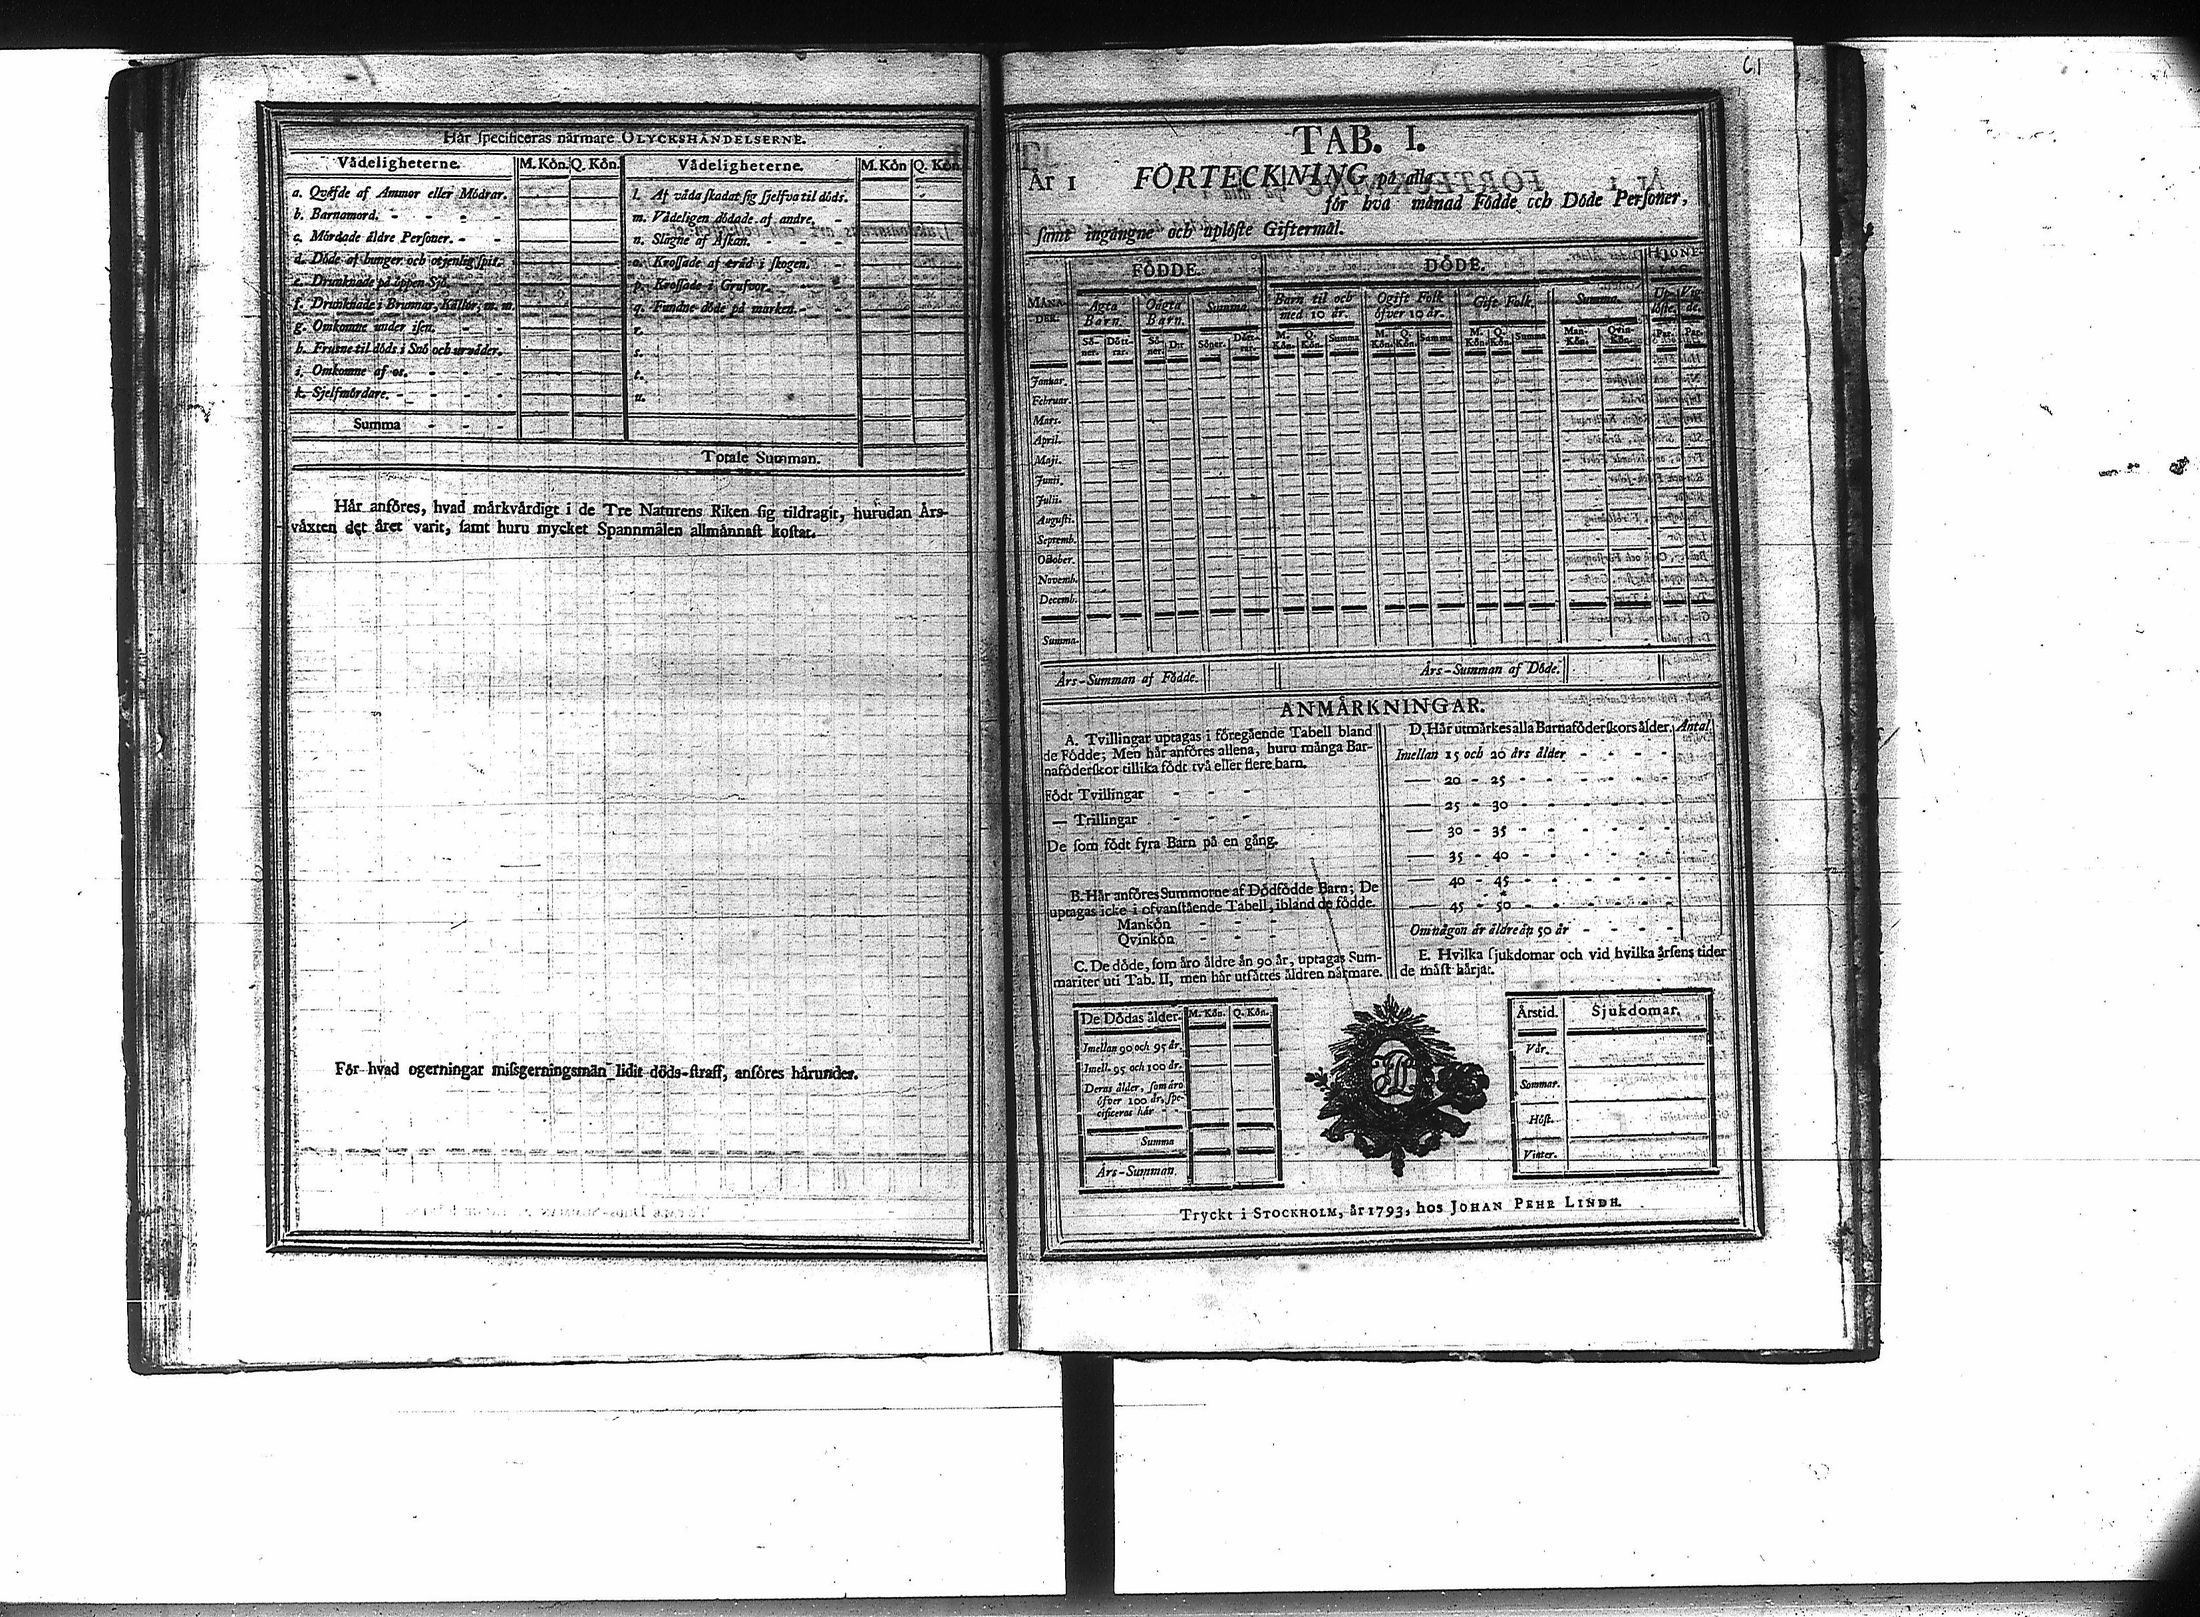 Hår ſpecificeras nårmare OLYCKSHÅNDELSERNE.
Vådeligheterne. M. Kôn. Q. Kôn. Vådeligheterne. M. Kôn Q. Kôn.
a. Qvåfde af Ammor eller Môdrar. l. Af våda ſkadat ſig ſjelfva til dôds.
b. Barnamord. m. Vådeligen dôdade af andre.
c. Môrdade åldre Perſoner. n. Slagne af Åſkan.
d. Dôde af hunger och otjenlig ſpis. o. Kroſſade af tråd i ſkogen.
e. Drunknade på ôppen Sjô. p. Kroſſade i Grufvor.
f. Drunknade i Brunnar, Kållor, m. m. q. Fundne dôde på marken.
g. Omkomne under iſen. r.
h. Fruſne til dôds i Snô och urvåder. s.
i. Omkomne af os. t.
k. Sjelfmôrdare. u.
Summa
Totale Summan.
Hår anfôres, hvad mårkvårdigt i de Tre Naturens Riken ſig tildragit, hurudan Års-
våxten det året varit, ſamt huru mycket Spannmålen allmånnaſt koſtat.
Fôr hvad ogerningar miſsgerningsmån lidit dôds-ſtraff, anfôres hårunder.
61
TAB. I.
År 1 FÔRTECKNING på alla
fôr hva månad Fôdde och Dôde Perſoner,
ſamt ingångne och uplôſte Giftermål.
MÅNA-
DER. FÔDDE. DÔDE.
Ågta
Barn. Oågta
Barn. Summa. Barn til och
med 10 år. Ogift Folk
ôfver 10 år. Gift Folk. Summa. Up-
lôſte. Vig-
de.
Sô-
ner. Dôtt-
rar. Sô-
ner. Dtt Sôner. Dôtt-
rar. M.
Kôn. Q.
Kôn. Summa M.
Kôn. Q.
Kôn. Summa M.
Kôn. Q.
Kôn. Summa Man-
Kôn. Qvin-
Kôn. Par. Par.
Januar.
Februar.
Mars.
April.
Maji.
Junii.
Julii.
Auguſti.
Septemb.
October.
Novemb.
Decemb.
Summa.
Års-Summan af Fôdde. Års-Summan af Dôde.
ANMÅRKNINGAR.
A. Tvillingar uptagas i fôregående Tabell bland
de Fôdde; Men hår anfôres allena, huru många Bar-
nafôderſkor tillika fôdt två eller flere barn.
Fôdt Tvillingar
— Trillingar
De ſom fôdt fyra Barn på en gång.
B. Hår anfôres Summorne af Dôdfôdde Barn; De
uptagas icke i ofvanſtående Tabell, ibland de fôdde.
Mankôn
Qvinkôn
C. De dôde, ſom åro åldre ån 90 år, uptagas Sum-
mariter uti Tab. II, men hår utſåttes åldren nårmare.
D. Hår utmårkes alla Barnafôderſkors ålder. Antal
Imellan 15 och 20 års ålder
— 20 - 25
— 25 - 30
— 30 - 35
— 35 - 40
— 40 - 45
— 45 - 50
Om någon år åldre ån 50 år
E. Hvilka ſjukdomar och vid hvilka årſens tider
de måſt hårjat.
De Dôdas ålder. M. Kôn. Q. Kôn.
Imellan 90 och 95 år.
Imell. 95 och 100 år.
Deras ålder, ſom åro
ôfver 100 år, ſpe-
cificeras hår
Summa
Års-Summan.
Årstid. Sjukdomar.
Vår.
Sommar.
Hôſt.
Vinter.
Tryckt i STOCKHOLM, år 1793, hos JOHAN PEHR LINDH.